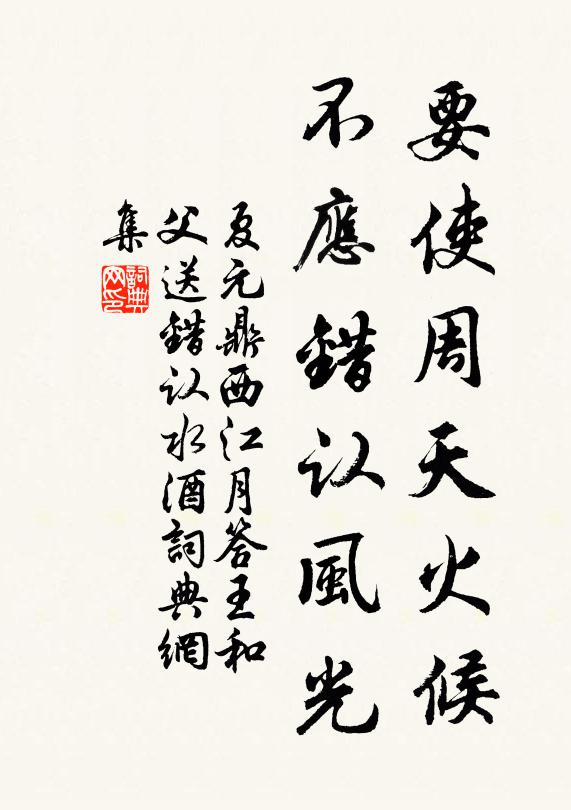 要使周天火候
不應錯认風光
夏元鼎西江月答王和
父送錯认水酒詞典網
集
詞典网印